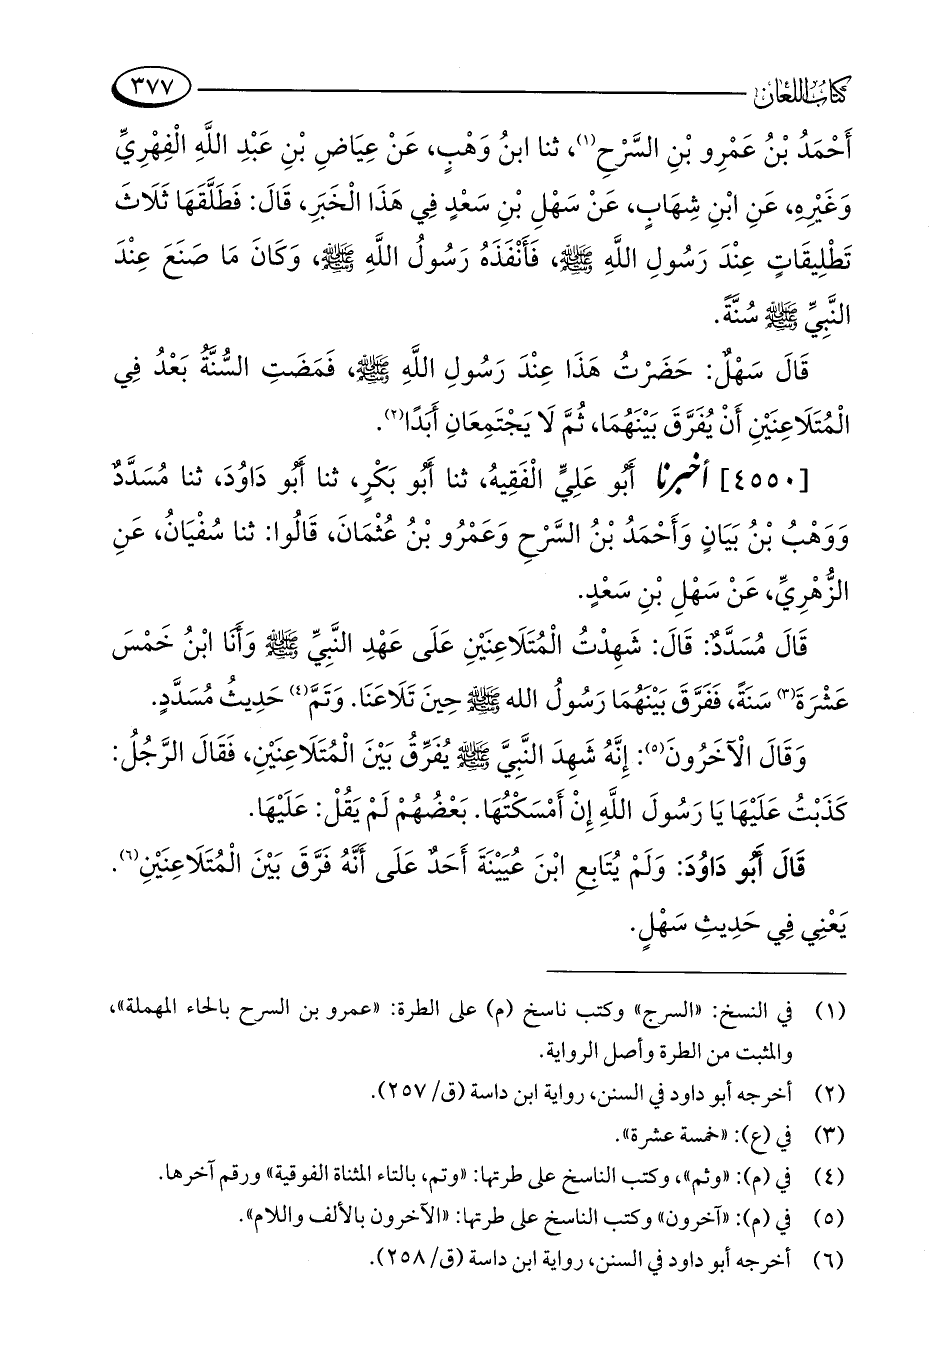 كتاب اللعان ٣٧٧
أَحْمَدُ بْنُ عَمْرِو بْنِ السَّرْحِ(١)، ثنا ابنُ وَهْبٍ، عَنْ عِيَاضِ بْنِ عَبْدِ اللَّهِ الْفِهْرِيِّ
وَغَيْرِهِ، عَنِ ابْنِ شِهَابٍ، عَنْ سَهْلِ بْنِ سَعْدٍ فِي هَذَا الْخَبَرِ، قَالَ: فَطَلَّقَهَا ثَلَاثَ
تَطْلِيقَاتٍ عِنْدَ رَسُولِ اللَّهِ ﷺ، فَأَنْفَذَهُ رَسُولُ اللَّهِ ﷺ، وَكَانَ مَا صَنَعَ عِنْدَ
النَّبِيِّ ﷺ سُنَّةً.
قَالَ سَهْلٌ: حَضَرْتُ هَذَا عِنْدَ رَسُولِ اللَّهِ ﷺ، فَمَضَتِ السُّنَّةُ بَعْدُ فِي
الْمُتَلَاعِنَيْنِ أَنْ يُفَرَّقَ بَيْنَهُمَا، ثُمَّ لَا يَجْتَمِعَانِ أَبَدًا(٢).
[٤٥٥٠] أخبرنا أَبُو عَلِيٍّ الْفَقِيهُ، ثنا أَبُو بَكْرٍ، ثنا أَبُو دَاوُدَ، ثنا مُسَدَّدٌ
وَوَهْبُ بْنُ بَيَانٍ وَأَحْمَدُ بْنُ السَّرْحِ وَعَمْرُو بْنُ عُثْمَانَ، قَالُوا: ثنا سُفْيَانُ، عَنِ
الزُّهْرِيِّ، عَنْ سَهْلِ بْنِ سَعْدٍ.
قَالَ مُسَدَّدٌ: قَالَ: شَهِدْتُ الْمُتَلَاعِنَيْنِ عَلَى عَهْدِ النَّبِيِّ ﷺ وَأَنَا ابْنُ خَمْسَ
عَشْرَةَ(٣) سَنَةً، فَفَرَّقَ بَيْنَهُمَا رَسُولُ الله ﷺ حِينَ تَلَاعَنَا. وَتَمَّ(٤) حَدِيثُ مُسَدَّدٍ.
وَقَالَ الْآخَرُونَ(٥): إِنَّهُ شَهِدَ النَّبِيَّ ﷺ يُفَرِّقُ بَيْنَ الْمُتَلَاعِنَيْنِ، فَقَالَ الرَّجُلُ:
كَذَبْتُ عَلَيْهَا يَا رَسُولَ اللَّهِ إِنْ أَمْسَكْتُهَا. بَعْضُهُمْ لَمْ يَقُلْ: عَلَيْهَا.
قَالَ أَبُو دَاوُدَ: وَلَمْ يُتَابِعِ ابْنَ عُيَيْنَةَ أَحَدٌ عَلَى أَنَّهُ فَرَّقَ بَيْنَ الْمُتَلَاعِنَيْنِ(٦).
يَعْنِي فِي حَدِيثِ سَهْلٍ.
(١) في النسخ: «السرج» وكتب ناسخ (م) على الطرة: «عمرو بن السرح بالحاء المهملة»،
والمثبت من الطرة وأصل الرواية.
(٢) أخرجه أبو داود في السنن، رواية ابن داسة (ق/ ٢٥٧).
(٣) في (ع): «خمسة عشرة».
(٤) في (م): «وثم»، وكتب الناسخ على طرتها: «وتم، بالتاء المثناة الفوقية» ورقم آخرها.
(٥) في (م): «آخرون» وكتب الناسخ على طرتها: «الآخرون بالألف واللام».
(٦) أخرجه أبو داود في السنن، رواية ابن داسة (ق/ ٢٥٨).